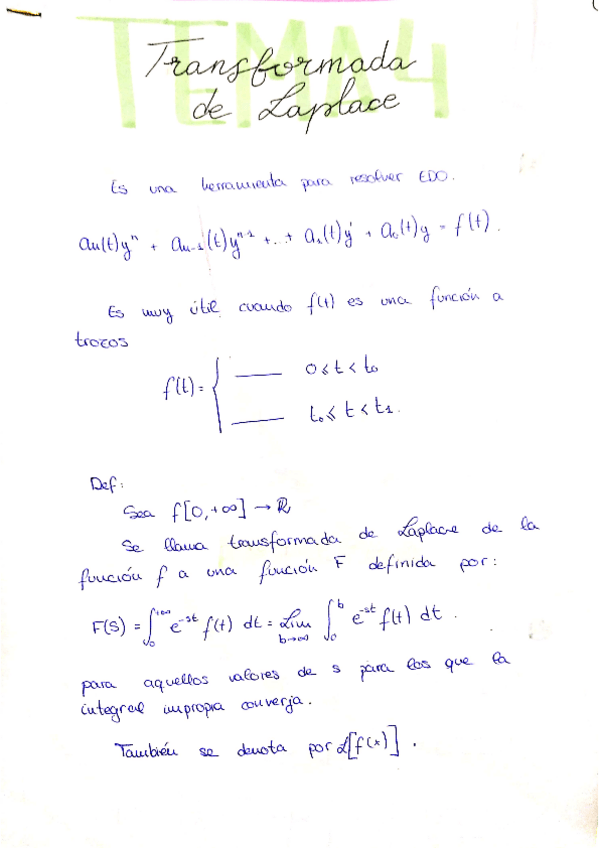 TEMA 4
Transformada
de Laplace
Es una herramienta para resolver EDO.
an(t)yⁿ + an-1(t)yⁿ⁻¹ + ... + a1(t)y' + a0(t)y = f(t).
Es muy útil cuando f(t) es una función a
trozos
f(t) = { ——— 0 ≤ t < t0
——— t0 ≤ t < t1.
Def:
Sea f[0,+∞] → ℝ
Se llama transformada de Laplace de la
función f a una función F definida por:
F(s) = ∫₀^{+∞} e^{-st} f(t) dt = Lim_{b→∞} ∫₀^{b} e^{-st} f(t) dt.
para aquellos valores de s para los que la
integral impropia converja.
También se denota por ℒ[f(x)].